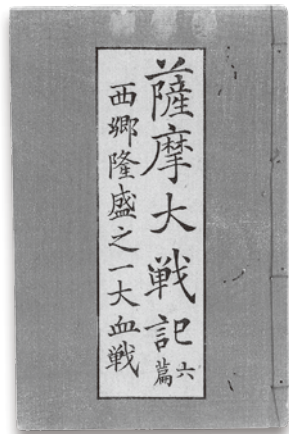 薩摩大戦記
六篇
西郷隆盛之一大血戦